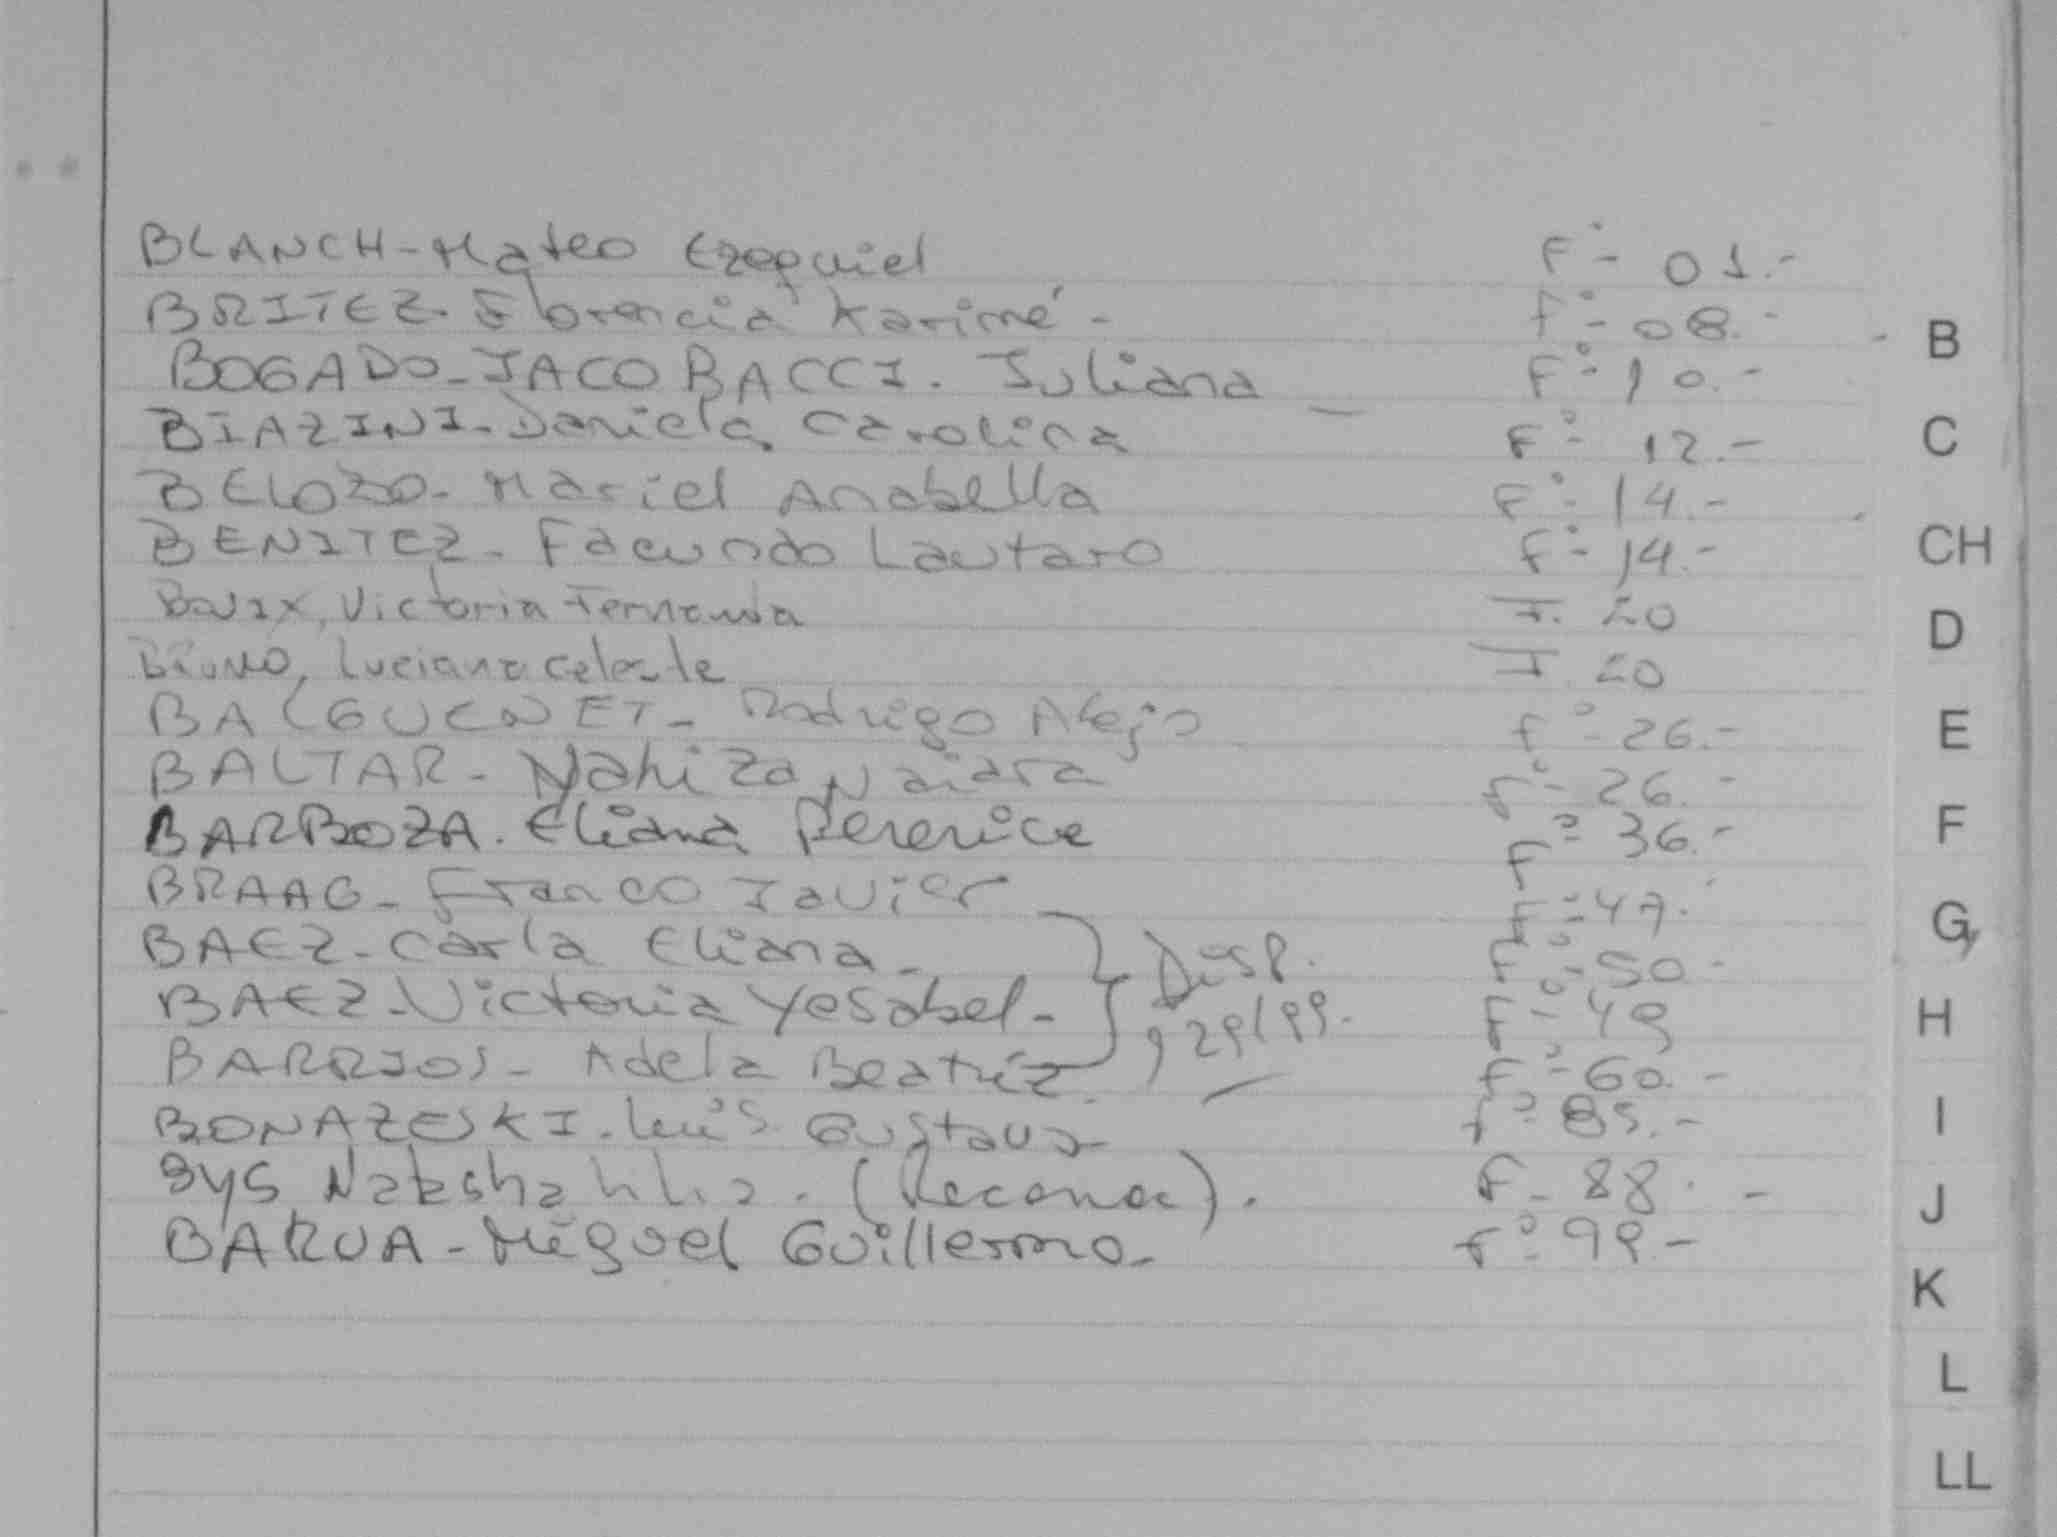 BLANCH-Mateo Ezequiel F°- 01.-
BRITEZ. Florencia Karimé- F°- 08.-
BOGADO-JACOBACCI. Juliana F°- 10.-
BIAZINI-Daniela Carolina F°- 12.-
BELOZO-Mariel Anabella F°- 14.-
BENITEZ-Facundo Lautaro F°- 14.-
Victoria Fernanda F. 20
Bruno, Luciana Celeste F. 20
BALGUENET-Rodrigo Alejo F°- 26.-
BALTAR-Nahiza Naiara F°- 26.-
BARBOZA. Eliana Berenice F°- 36.-
BRAAG-Franco Javier F°- 47.
BAEZ-Carla Eliana- F°- 50-
BAEZ-Victoria Yesabel- F°- 49
Disp. 29/99.-
BARRIOS-Adela Beatriz F°- 60.-
BONAZESKI. Luis Gustavo F°- 85.-
BYS (Reconoc). F- 88.-
BARUA-Miguel Guillermo- F°- 99.-
B
C
CH
D
E
F
G
H
I
J
K
L
LL